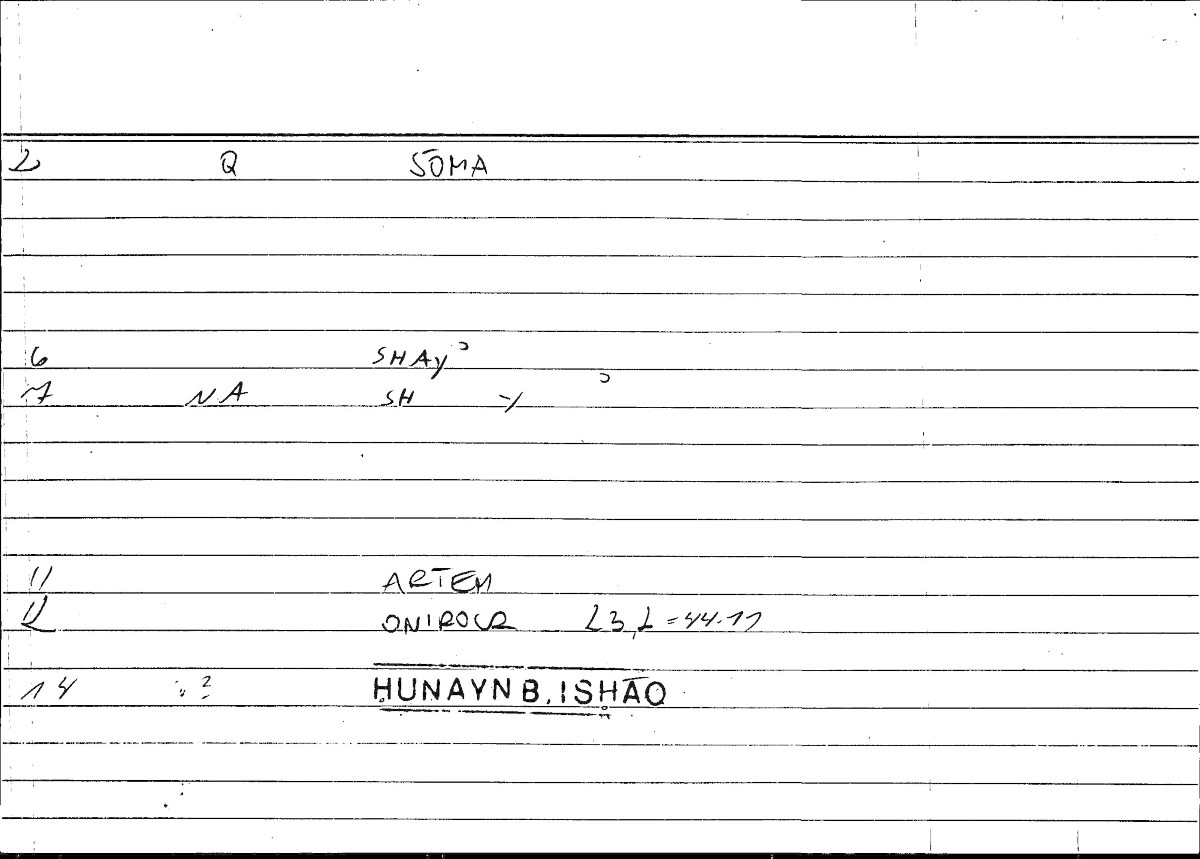 2 Q SŌMA
6 SHAY ᵓ
7 NA SH -y ᵓ
11 ARTEM
12 ONIROCR 23,2 = 44.11
14 ḤUNAYN B. ISḤĀQ